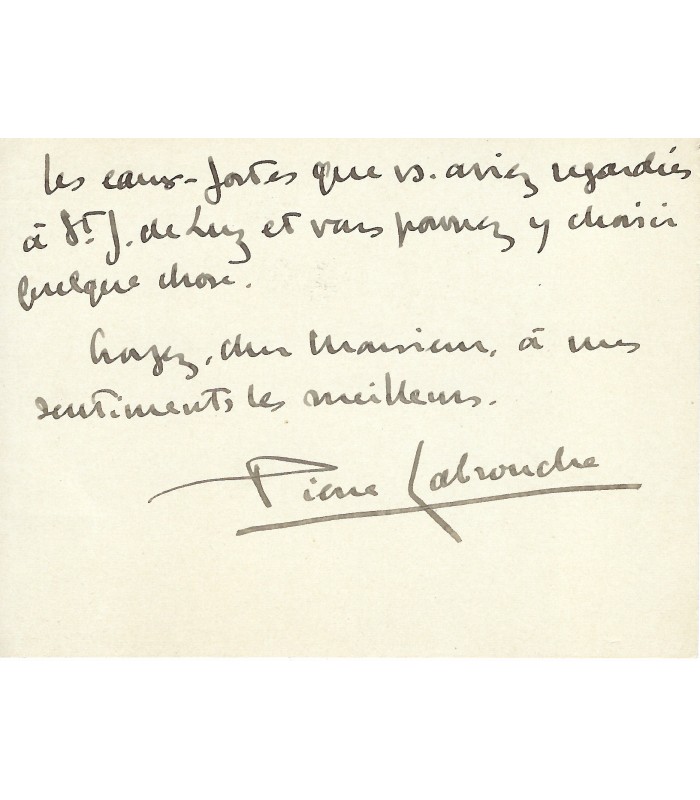 les eaux-fortes que vs. aviez regardées
à St. J. de Luz et vous pourrez y choisir
quelque chose.
Croyez, cher Monsieur, à mes
sentiments les meilleurs.
Pierre Labrouche